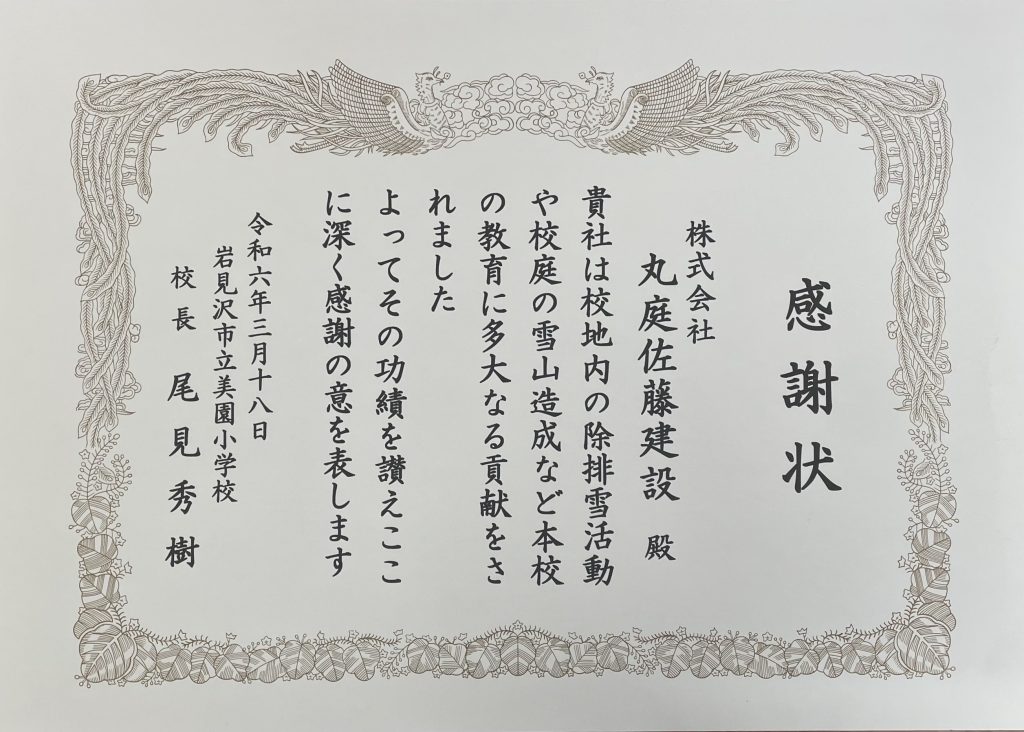 感謝状
株式会社
丸庭佐藤建設 殿
貴社は校地内の除排雪活動
や校庭の雪山造成など本校
の教育に多大なる貢献をさ
れました
よってその功績を讃えここ
に深く感謝の意を表します
令和六年三月十八日
岩見沢市立美園小学校
校長 尾見秀樹